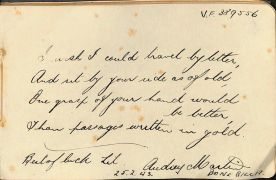 V.F. 389556
I wish I could travel by letter,
And sit by your side as of old,
One grasp of your hand would
be better,
Than passages written in gold.
Best of luck Lil
Audrey
25.2.43.